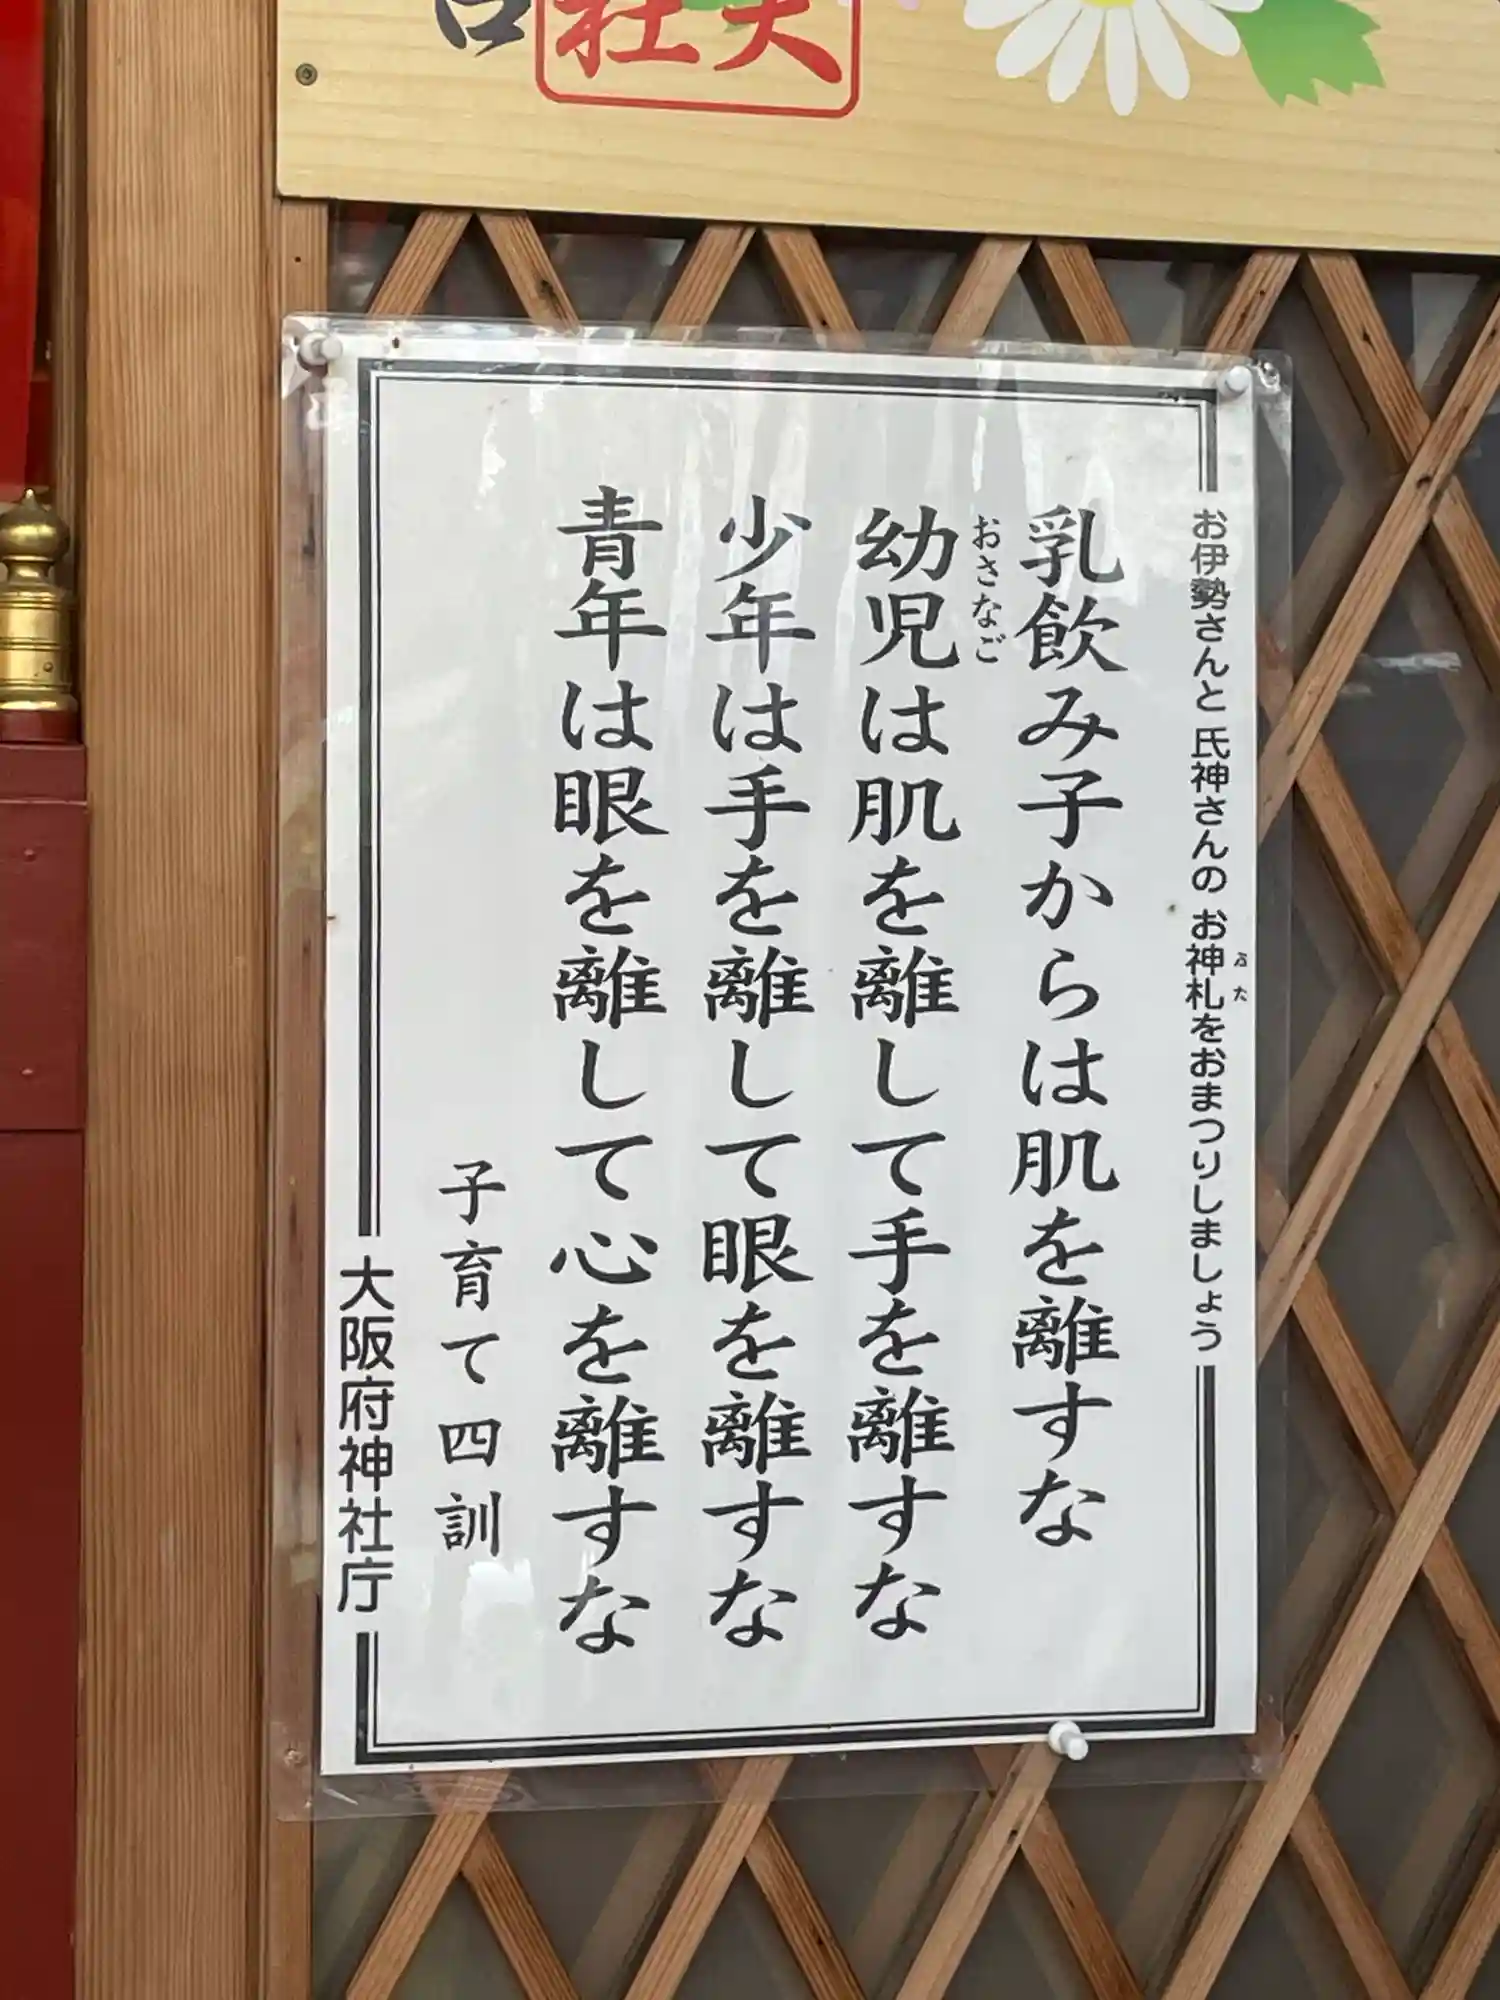 お伊勢さんと氏神さんのお神札をおまつりしましょう
ふた
乳飲み子からは肌を離すな
おさなご
幼児は肌を離して手を離すな
少年は手を離して眼を離すな
青年は眼を離して心を離すな
子育て四訓
大阪府神社庁